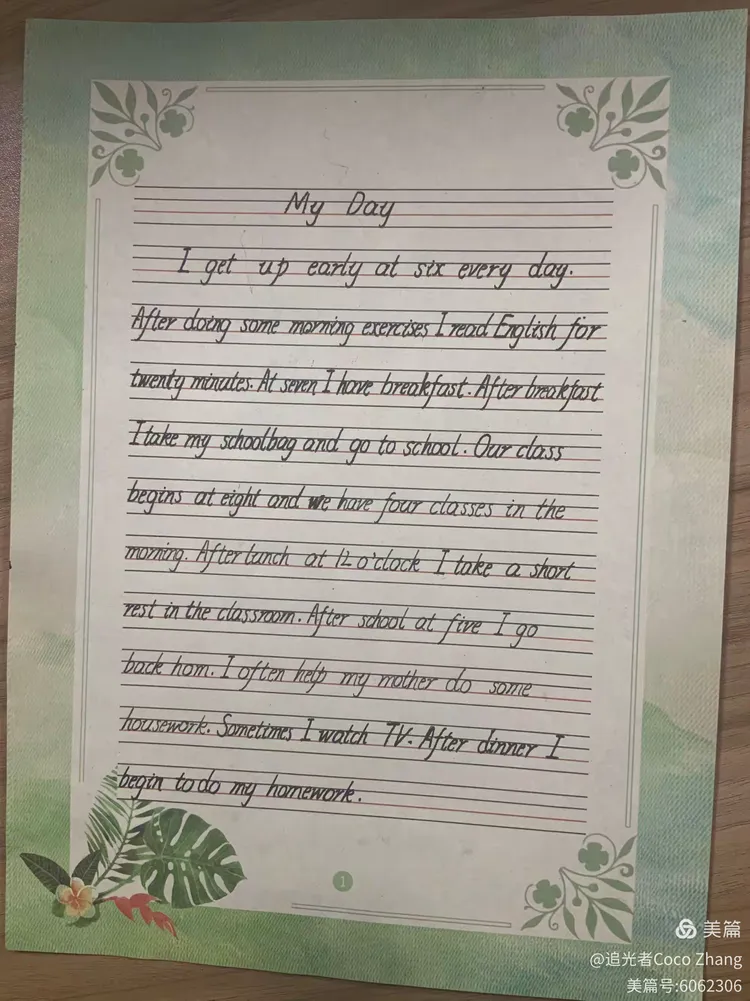 My Day
I get up early at six every day.
After doing some morning exercises I read English for
twenty minutes. At seven I have breakfast. After breakfast
I take my schoolbag and go to school. Our class
begins at eight and we have four classes in the
morning. After lunch at 12 o'clock I take a short
rest in the classroom. After school at five I go
back hom. I often help my mother do some
housework. Sometimes I watch TV. After dinner I
begin to do my homework.
1
美篇
@追光者Coco Zhang
美篇号:6062306